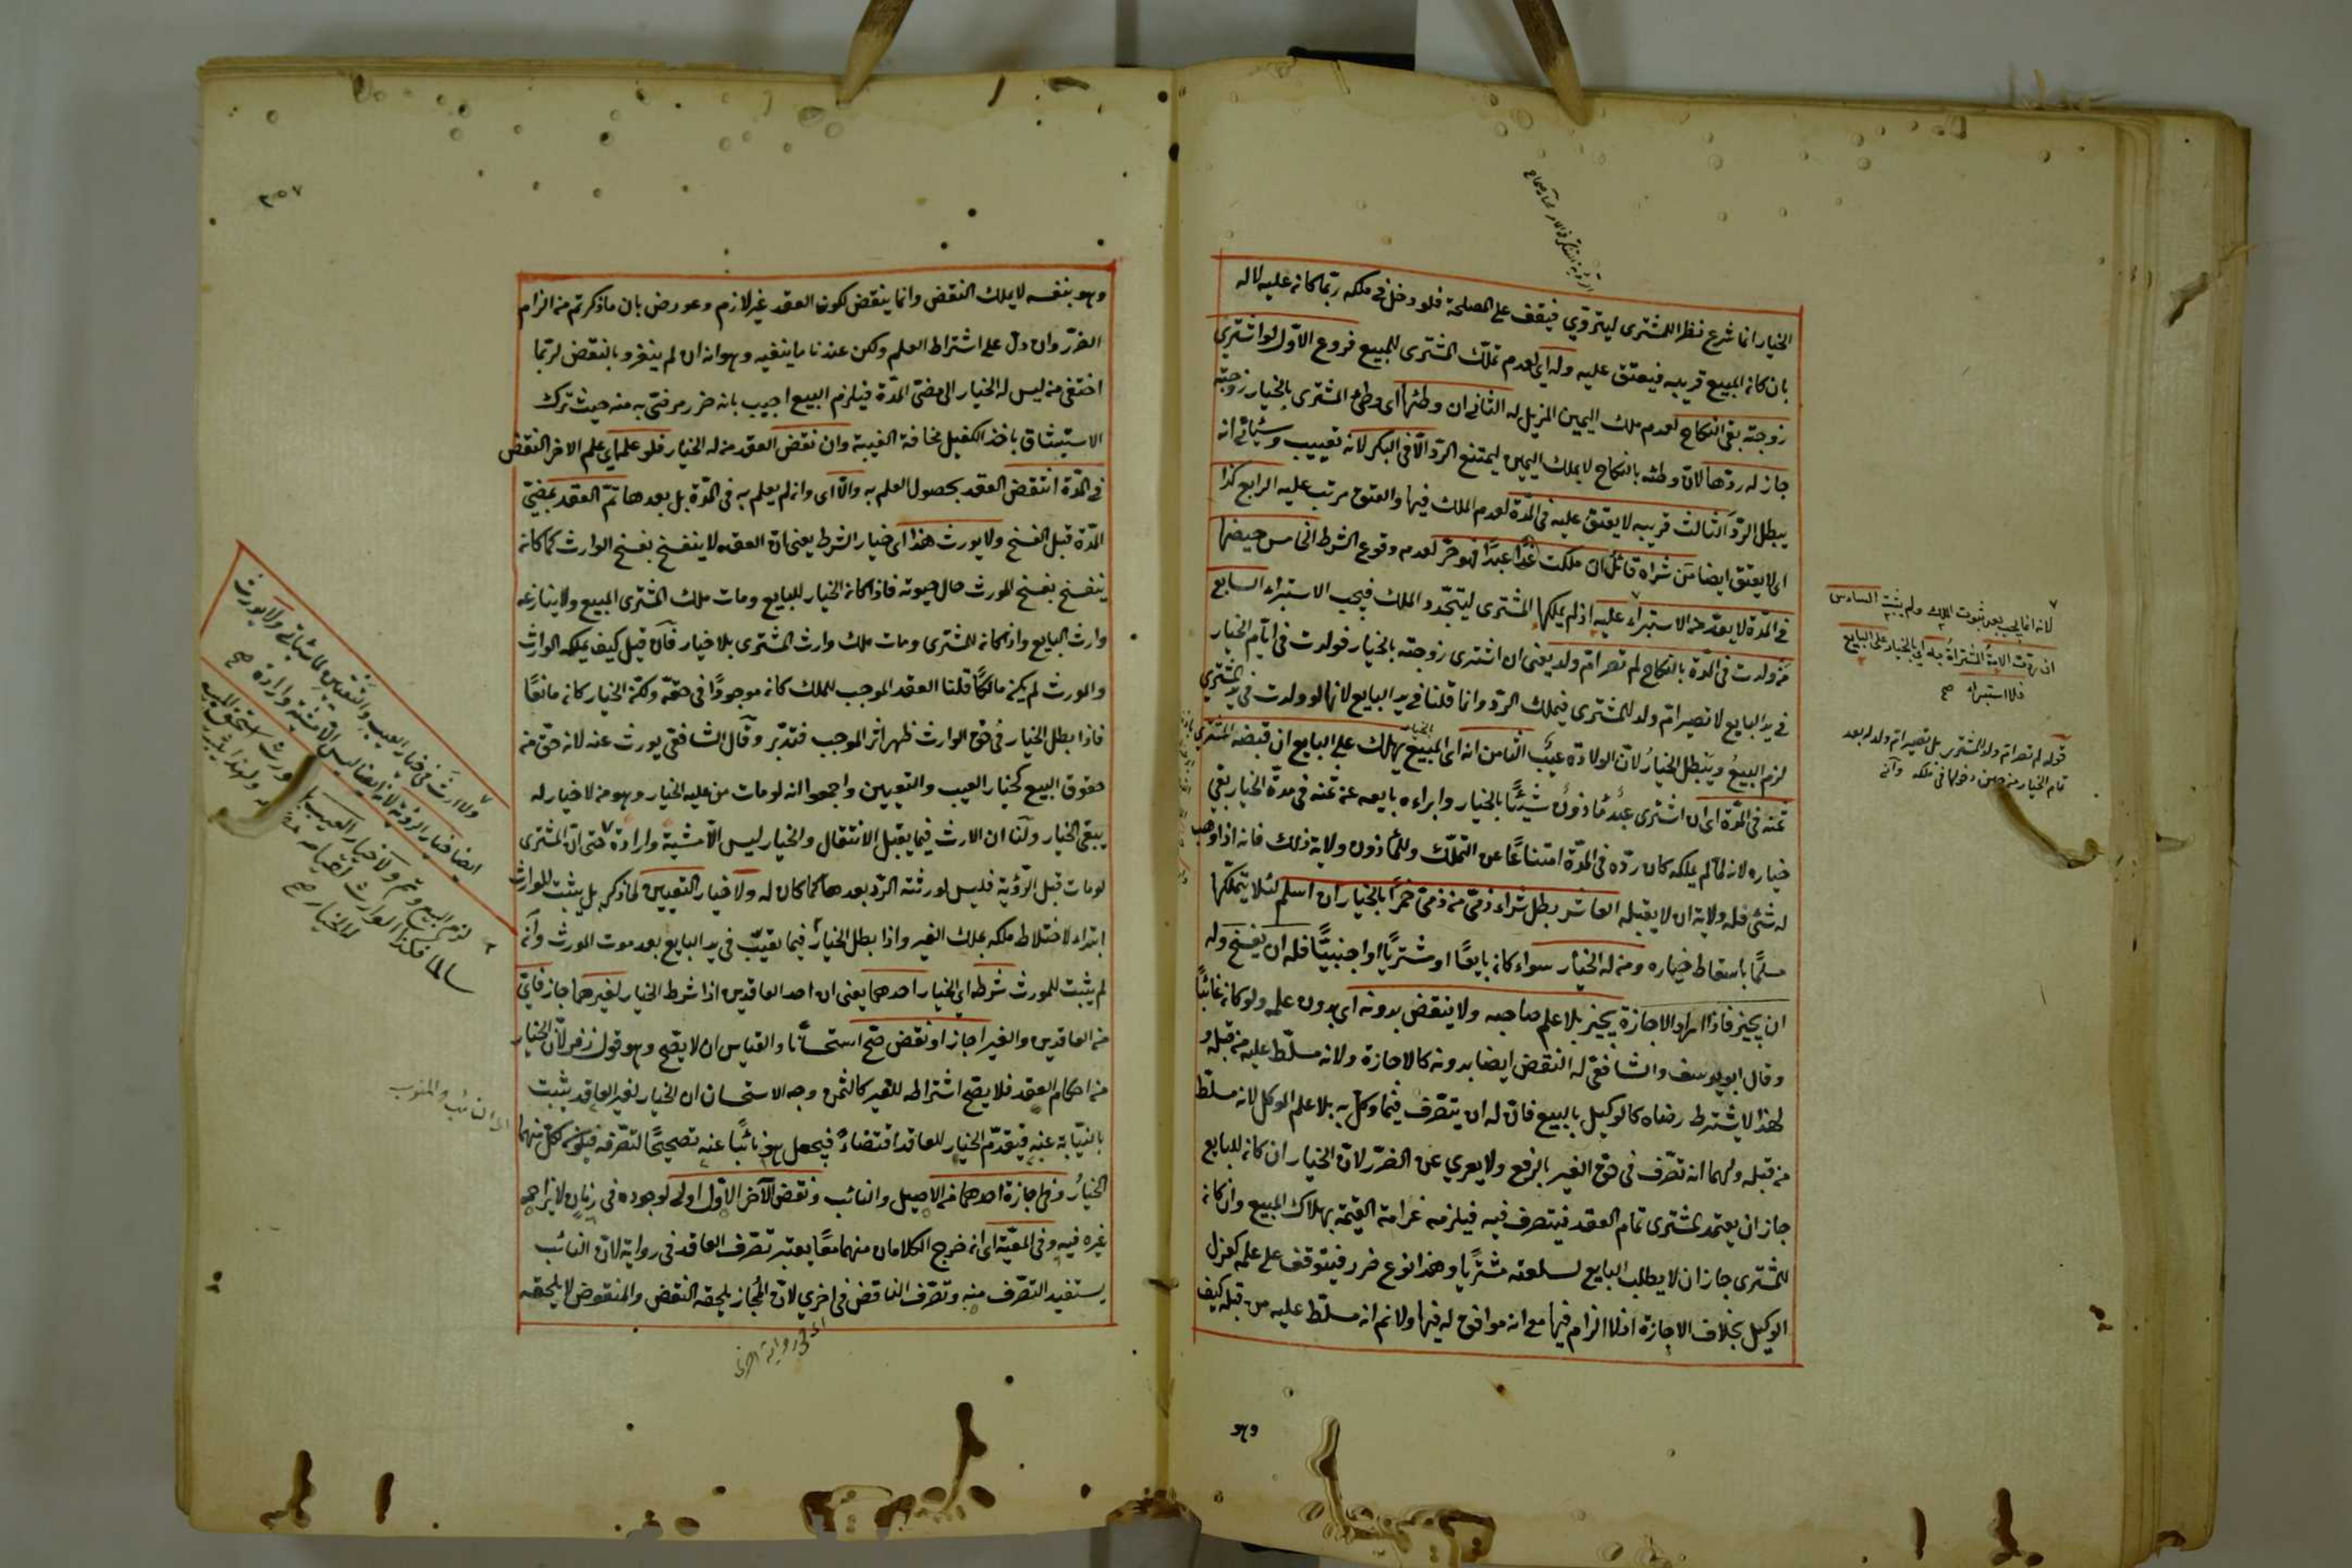 الخيار انما شرع نظرا للمشترى ليتروّي فيقف على المصلحة فلو دخل في ملكه ربّما كان عليه لا له
بان كان المبيع قريبه فيعتق عليه وله اي لعدم تملّك المشترى للمبيع فروع الاوّل لو اشترى
زوجته بقى النكاح لعدم ملك اليمين المزيل له الثانى ان وطئها اى وطئ المشترى بالخيار زوجته
جاز له ردّها لانّ وطئه بالنكاح لا بملك اليمين ليمتنع الردّ الّا فى البكر لانه تعييب وسيأتى انه
يبطل الردّ الثالث قريبه لا يعتق عليه فى المدّة لعدم الملك فيها والعتق مرتب عليه الرابع كذا
اى لا يعتق ايضا من شراه قائلا ان ملكت عبدًا فهو حرّ لعدم وقوع الشرط الخامس حيضها
فى المدّة لا يعدّ من الاستبراء عليه اذ لم يملكها المشترى ليتجدّد الملك فيجب الاستبراء السابع
من ولدت فى المدّة بالنكاح لم تصر امّ ولد يعنى ان اشترى زوجته بالخيار فولدت فى ايّام الخيار
فى يد البايع لا تصير امّ ولد للمشترى فيملك الردّ وانما قلنا فى يد البايع لانها لو ولدت فى يد المشترى
لزم البيع ويبطل الخيار لانّ الولادة عيب الثامن انه اى المبيع يهلك على البايع ان قبضه المشترى
عنه فى المدّة اى ان اشترى عبد مأذون شيئًا بالخيار وابراءه بايعه عن ثمنه فى مدّة الخيار بقى
خياره لانه لمّا لم يملكه كان ردّه فى المدّة امتناعًا عن التملّك وللمأذون ولاية ذلك فانه اذا وهب
له شئ فله ولاية ان لا يقبله العاشر بطل شراء ذمّى من ذمّى خمرًا بالخيار ان اسلم لئلا يتملّكها
مسلمًا باسقاط خياره ومن له الخيار سواء كان بايعًا او مشتريًا او اجنبيًّا فله ان يفسخ وله
ان يجيز فاذا اراد الاجازة يجيز بلا علم صاحبه ولا ينقض بدونه اى بدون علمه ولو كان غائبًا
وقال ابو يوسف والشافعى له النقض ايضا بدونه كالاجازة ولانه مسلّط عليه من قبله و
لهذا لا يشترط رضاه كالوكيل بالبيع فانّ له ان يتصّرف فيما وكّل به بلا علم الموكل لانه مسلّط
من قبله ولهما انه تصّرف فى حق الغير بالرفع ولا يعري عن الضرر لانّ الخيار ان كان للبايع
جاز ان يعتمد المشترى تمام العقد فيتصرف فيه فيلزمه غرامة القيمة بهلاك المبيع وان كان
للمشترى جاز ان لا يطلب البايع لسلعته مشتريًا وهذا نوع ضرر فيتوقف على علمه كعزل
الوكيل بخلاف الاجازة اذ لا الزام فيها مع انه موافق له فيها ولا نم انه مسلّط عليه من قبله كيف
لانه انما يجب بعد ثبوت الملك ولم يثبت السادس
ان ردّت الامة المشتراة به اى بالخيار على البايع
فلا استبراء صح
قوله لم تصر امّ ولد المشترى بل تصير امّ ولد له بعد
تمام الخيار من حين دخولها فى ملكه
وهو
٣٥٧
وهو بنفسه لا يملك النقض وانما ينقض لكون العقد غير لازم وعورض بان ما ذكرتم من الزام
الضرر وان دلّ على اشتراط العلم ولكن عندنا ما ينفيه وهو انه ان لم ينفرد بالنقض لربّما
اختفى من ليس له الخيار الى مضىّ المدّة فيلزم البيع اجيب بانه ضرر مرضىّ به منه حيث ترك
الاستيثاق باخذ الكفيل مخافة الغيبة وان نقض العقد من له الخيار فلو علم اى علم الاخر النقض
فى المدّة انتقض العقد بحصول العلم به والّا اى وان لم يعلم به فى المدّة بل بعدها تمّ العقد بمضىّ
المدّة قبل الفسخ ولا يورث هذا اى خيار الشرط يعنى انّ العقد لا ينفسخ بفسخ الوارث كما كان
ينفسخ بفسخ المورث حال حيوته فاذا كان الخيار للبايع ومات ملك المشترى المبيع ولا ينازعه
وارث البايع واذا كان للمشترى ومات ملك وارث المشترى بلا خيار فان قيل كيف يملكه الوارث
والمورث لم يكن مالكًا قلنا العقد الموجب للملك كان موجودًا فى حقّه ولكنّ الخيار كان مانعًا
فاذا بطل الخيار فى حق الوارث ظهر اثر الموجب فتدبّر وقال الشافعى يورث عنه لانه حق من
حقوق البيع كخيار العيب والتعيين واجمعوا انه لو مات من عليه الخيار وهو من لا خيار له
يبقى الخيار ولنا ان الارث فيما يقبل الانتقال والخيار ليس الّا مشيّة وارادة حتى انّ المشترى
لو مات قبل الرؤية فليس لورثته الردّ بعدها كما كان له ولا خيار التعيين لما ذكر بل يثبت للوارث
ابتداء لاختلاط ملكه بملك الغير واذا بطل الخيار فيما تعيّب فى يد البايع بعد موت المورث وانه
لم يثبت للمورث شرطه اى الخيار احدهما يعنى ان احد العاقدين اذا شرط الخيار لغيرهما جاز فاىّ
من العاقدين والغير اجاز او نقض صّح استحسانا والقياس ان لا يصّح وهو قول زفر لانّ الخيار
من احكام العقد فلا يصّح اشتراطه للغير كالثمن وجه الاستحسان ان الخيار لغير العاقد يثبت
بالنيابة عنه فيقدّم الخيار للعاقد اقتضاءً فيجعل هو نائبًا عنه تصحيحًا لتصّرفه فيكون لكلّ منهما
الخيار وفى اجازة احدهما من الاصيل والنائب ونقض الآخر الاوّل اولى لوجوده فى زمان لا يزاحمه
غيره فيه وفى المعيّة اى ان خرج الكلامان منهما معًا يعتبر تصّرف العاقد فى رواية لانّ النائب
يستفيد التصّرف منه وتصّرف الناقض فى اخرى لانّ المجاز يلحقه النقض والمنقوض لا يلحقه
اى فى رواية اخرى
اى النائب والمنوب
ولا ارث فى خيار العيب والتعيين لما سيأتى ولا يورث
ايضا خيار الرؤية لانه ايضا ليس الّا مشيّة وارادة صح